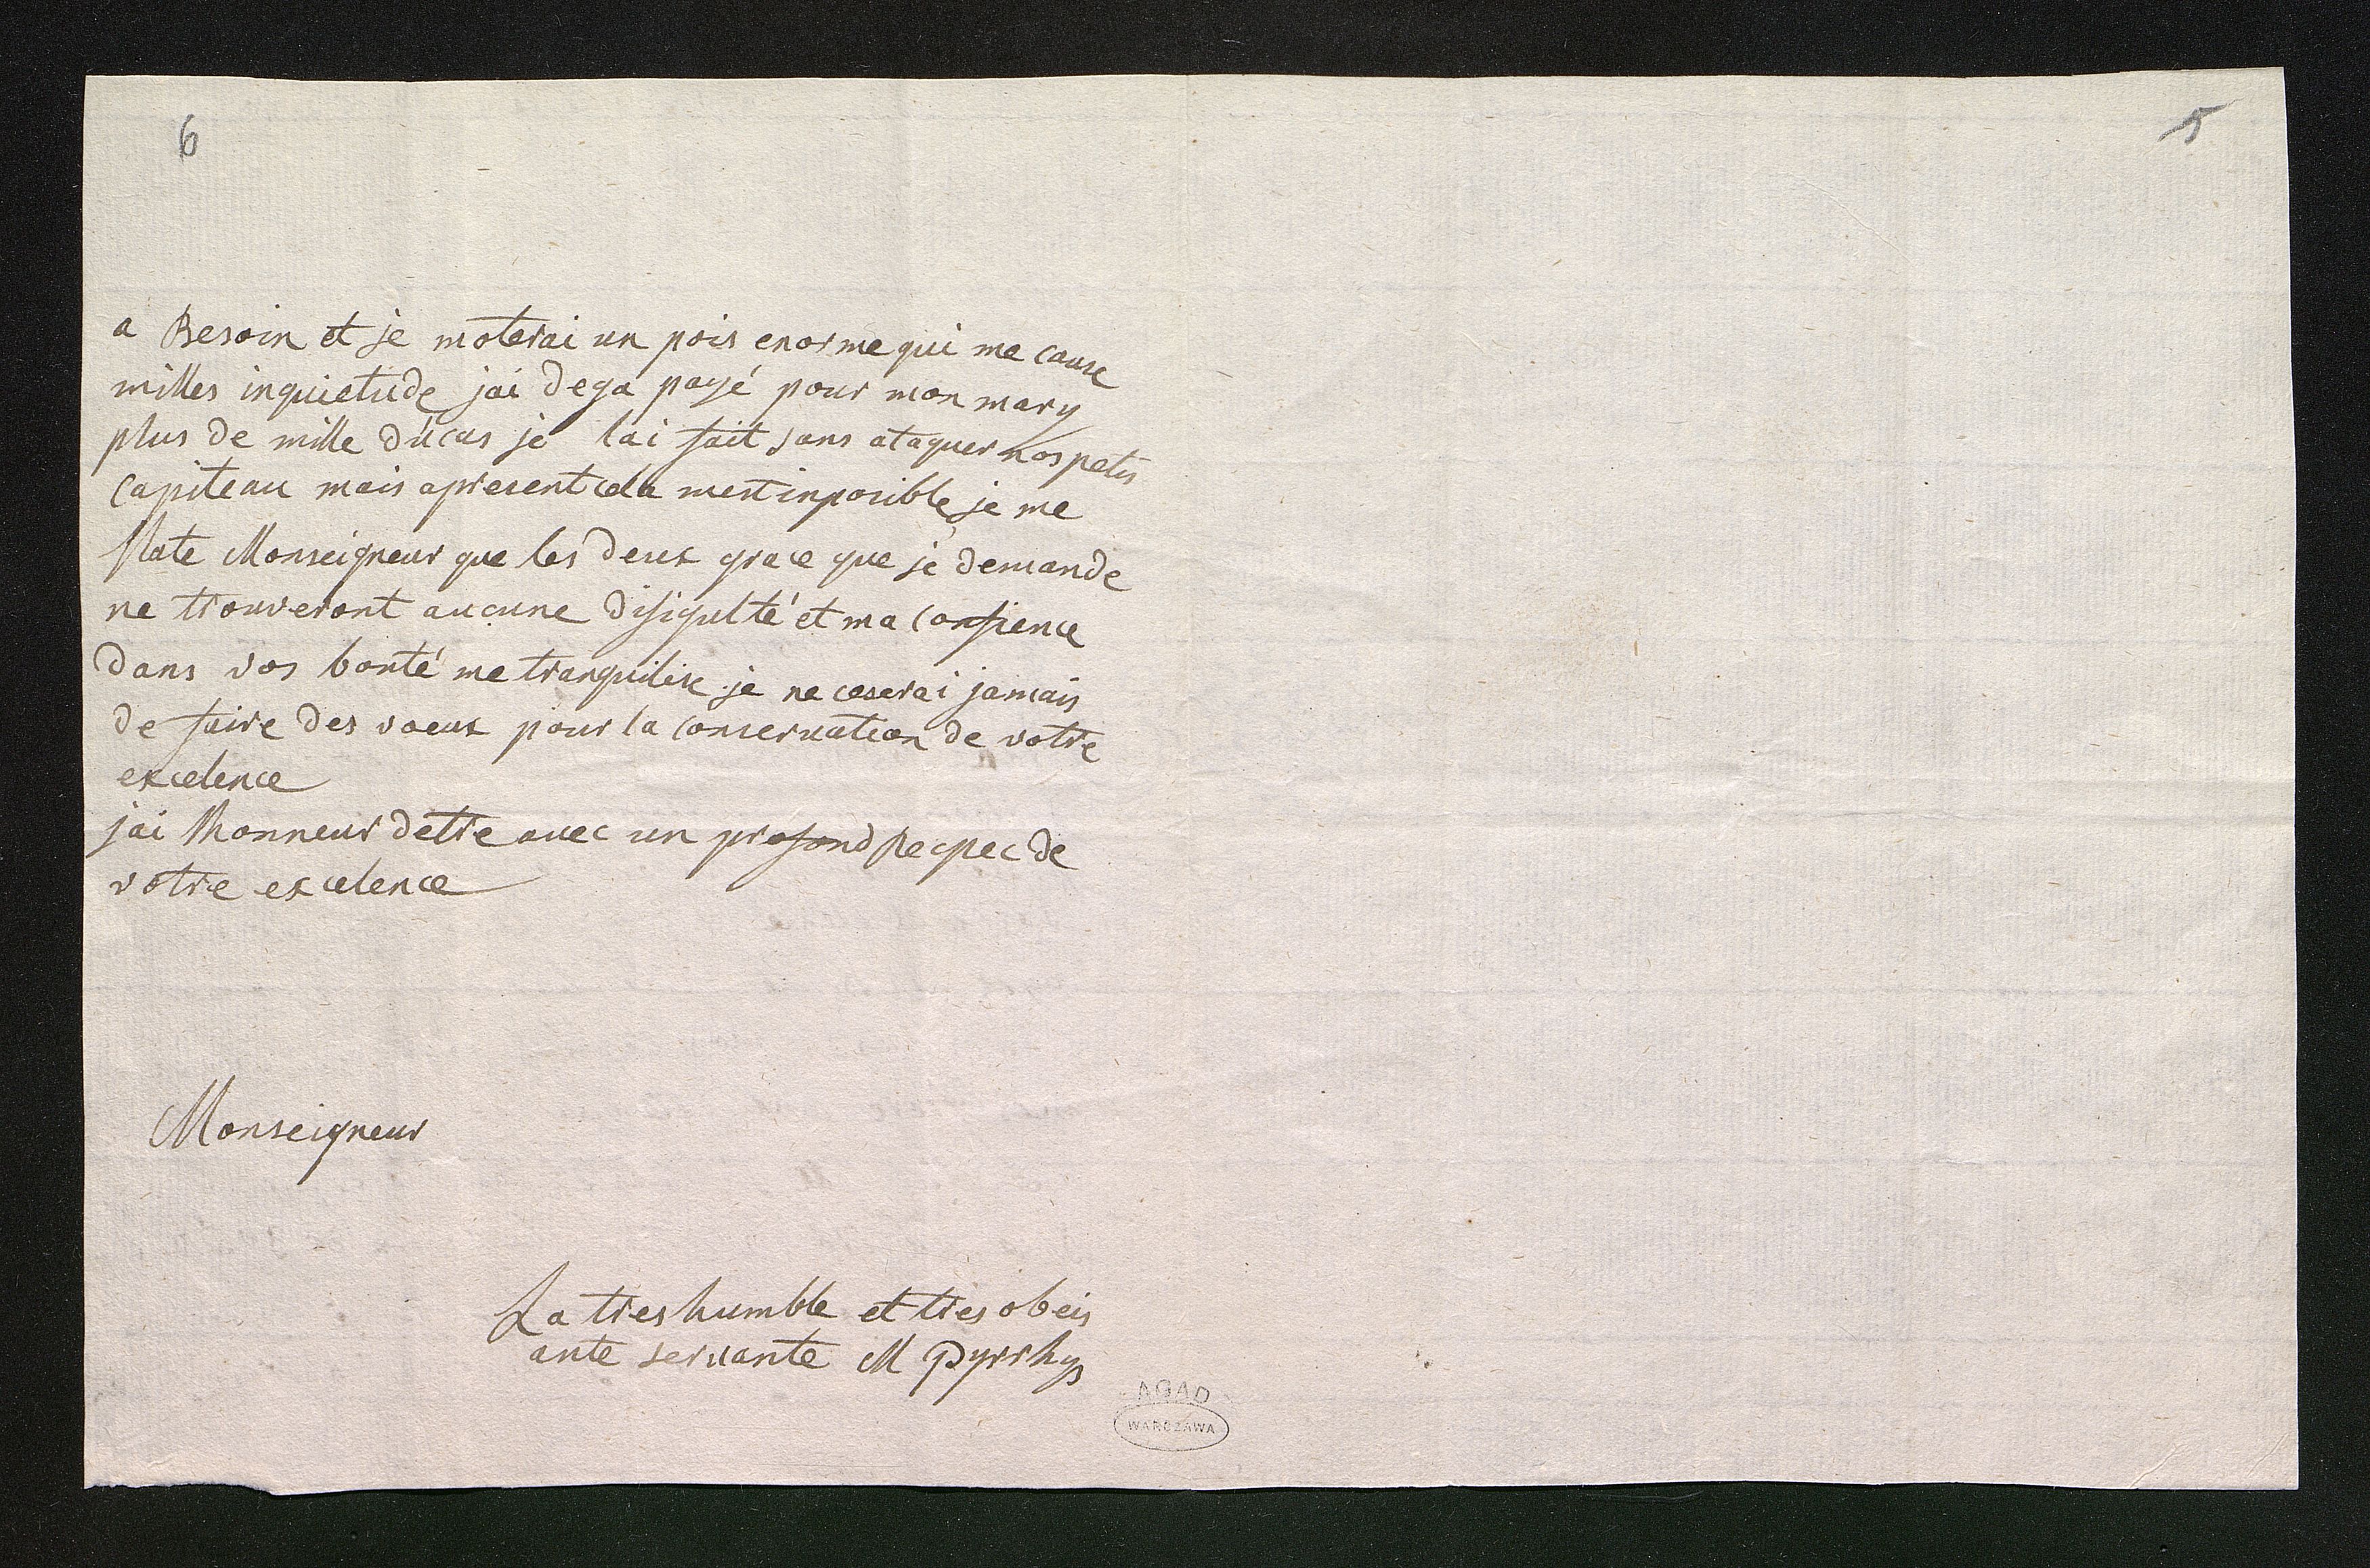 6
5
a Besoin et je moterai un pois enorme qui me cause
milles inquietude jai dega payé pour mon mary
plus de mille ducas je lai fait sans ataquer nos petis
capiteau mais apresent cela mest inposible je me
flate Monseigneur que les deux grace que je demande
ne trouveront aucune difigulté et ma confience
dans vos bonté me tranquilise je ne ceserai jamais
de faire des voeux pour la conservation de votre
excelence
jai lhonneur detre avec un profond recpec de
votre excelence
Monseigneur
La tres humble et tres obeis
ante servante M Pyrrhys
AGAD
WARSZAWA